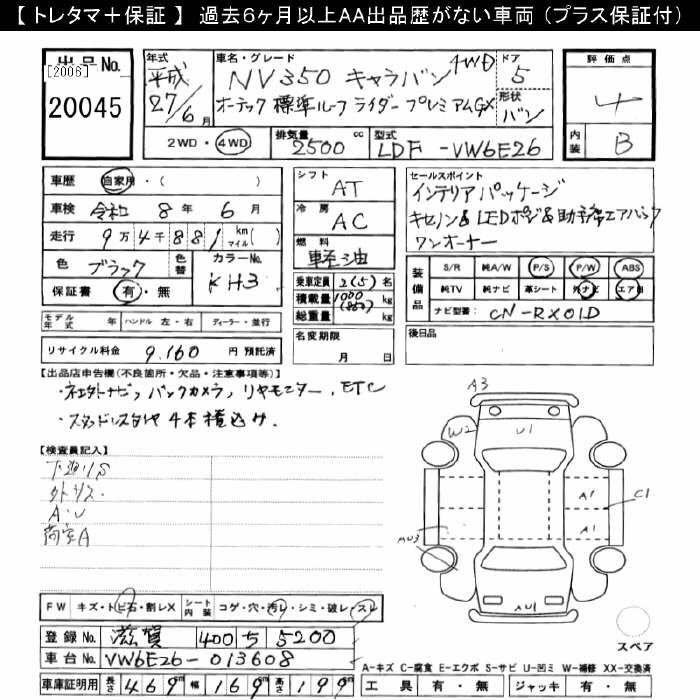 【 トレタマ＋保証 】 過去6ヶ月以上AA出品歴がない車両 (プラス保証付)
出品No.
[2006]
20045
年式
平成
27/6月
車名・グレード
NV350 キャラバン 4WD
オーテック 標準ルーフ ライダー プレミアムGX
ドア
5
形状
バン
2WD・4WD
排気量
2500 cc
型式
LDF - VW6E26
評価点
4
内装
B
車歴 自家用・( )
車検 令和 8年 6月
走行 9万4千881 km マイル( )
色 ブラック
色替
カラーNo.
KH3
保証書 有・無
シフト
AT
冷房
AC
燃料
軽油
乗車定員 2(5)名
積載量 1000(850) kg
総重量 kg
名変期限
月 日
セールスポイント
インテリアパッケージ
キセノン&LEDポジ&助手席エアバック
ワンオーナー
装備品
S/R 純A/W P/S P/W ABS
純TV 純ナビ 革シート 外ナビ エア用
ナビ型番: CN-RX01D
後日品
モデル年式 年 ハンドル 左・右 ディーラー・並行
リサイクル料金 9,160 円 預託済
【出品店申告欄(不良箇所・欠品・注意事項等)】
・社外ナビ, バックカメラ, リヤモニター, ETC
・スタッドレスタイヤ 4本積込み.
【検査員記入】
下廻りS
外小ス.
A・U
荷室A
A3
W2
U1
A1
C1
A1
AU3
AU1
FW キズ・トビ石・割レX シート内装 コゲ・穴・汚レ・シミ・破レ・スレ
登録No. 滋賀 400 5 5200
車台No. VW6E26-013608
車庫証明用 長さ 469 cm 幅 169 cm 高さ 199 cm
スペア
A-キズ C-腐食 E-エクボ S-サビ U-凹ミ W-補修 XX-交換済
工具 有・無 ジャッキ 有・無